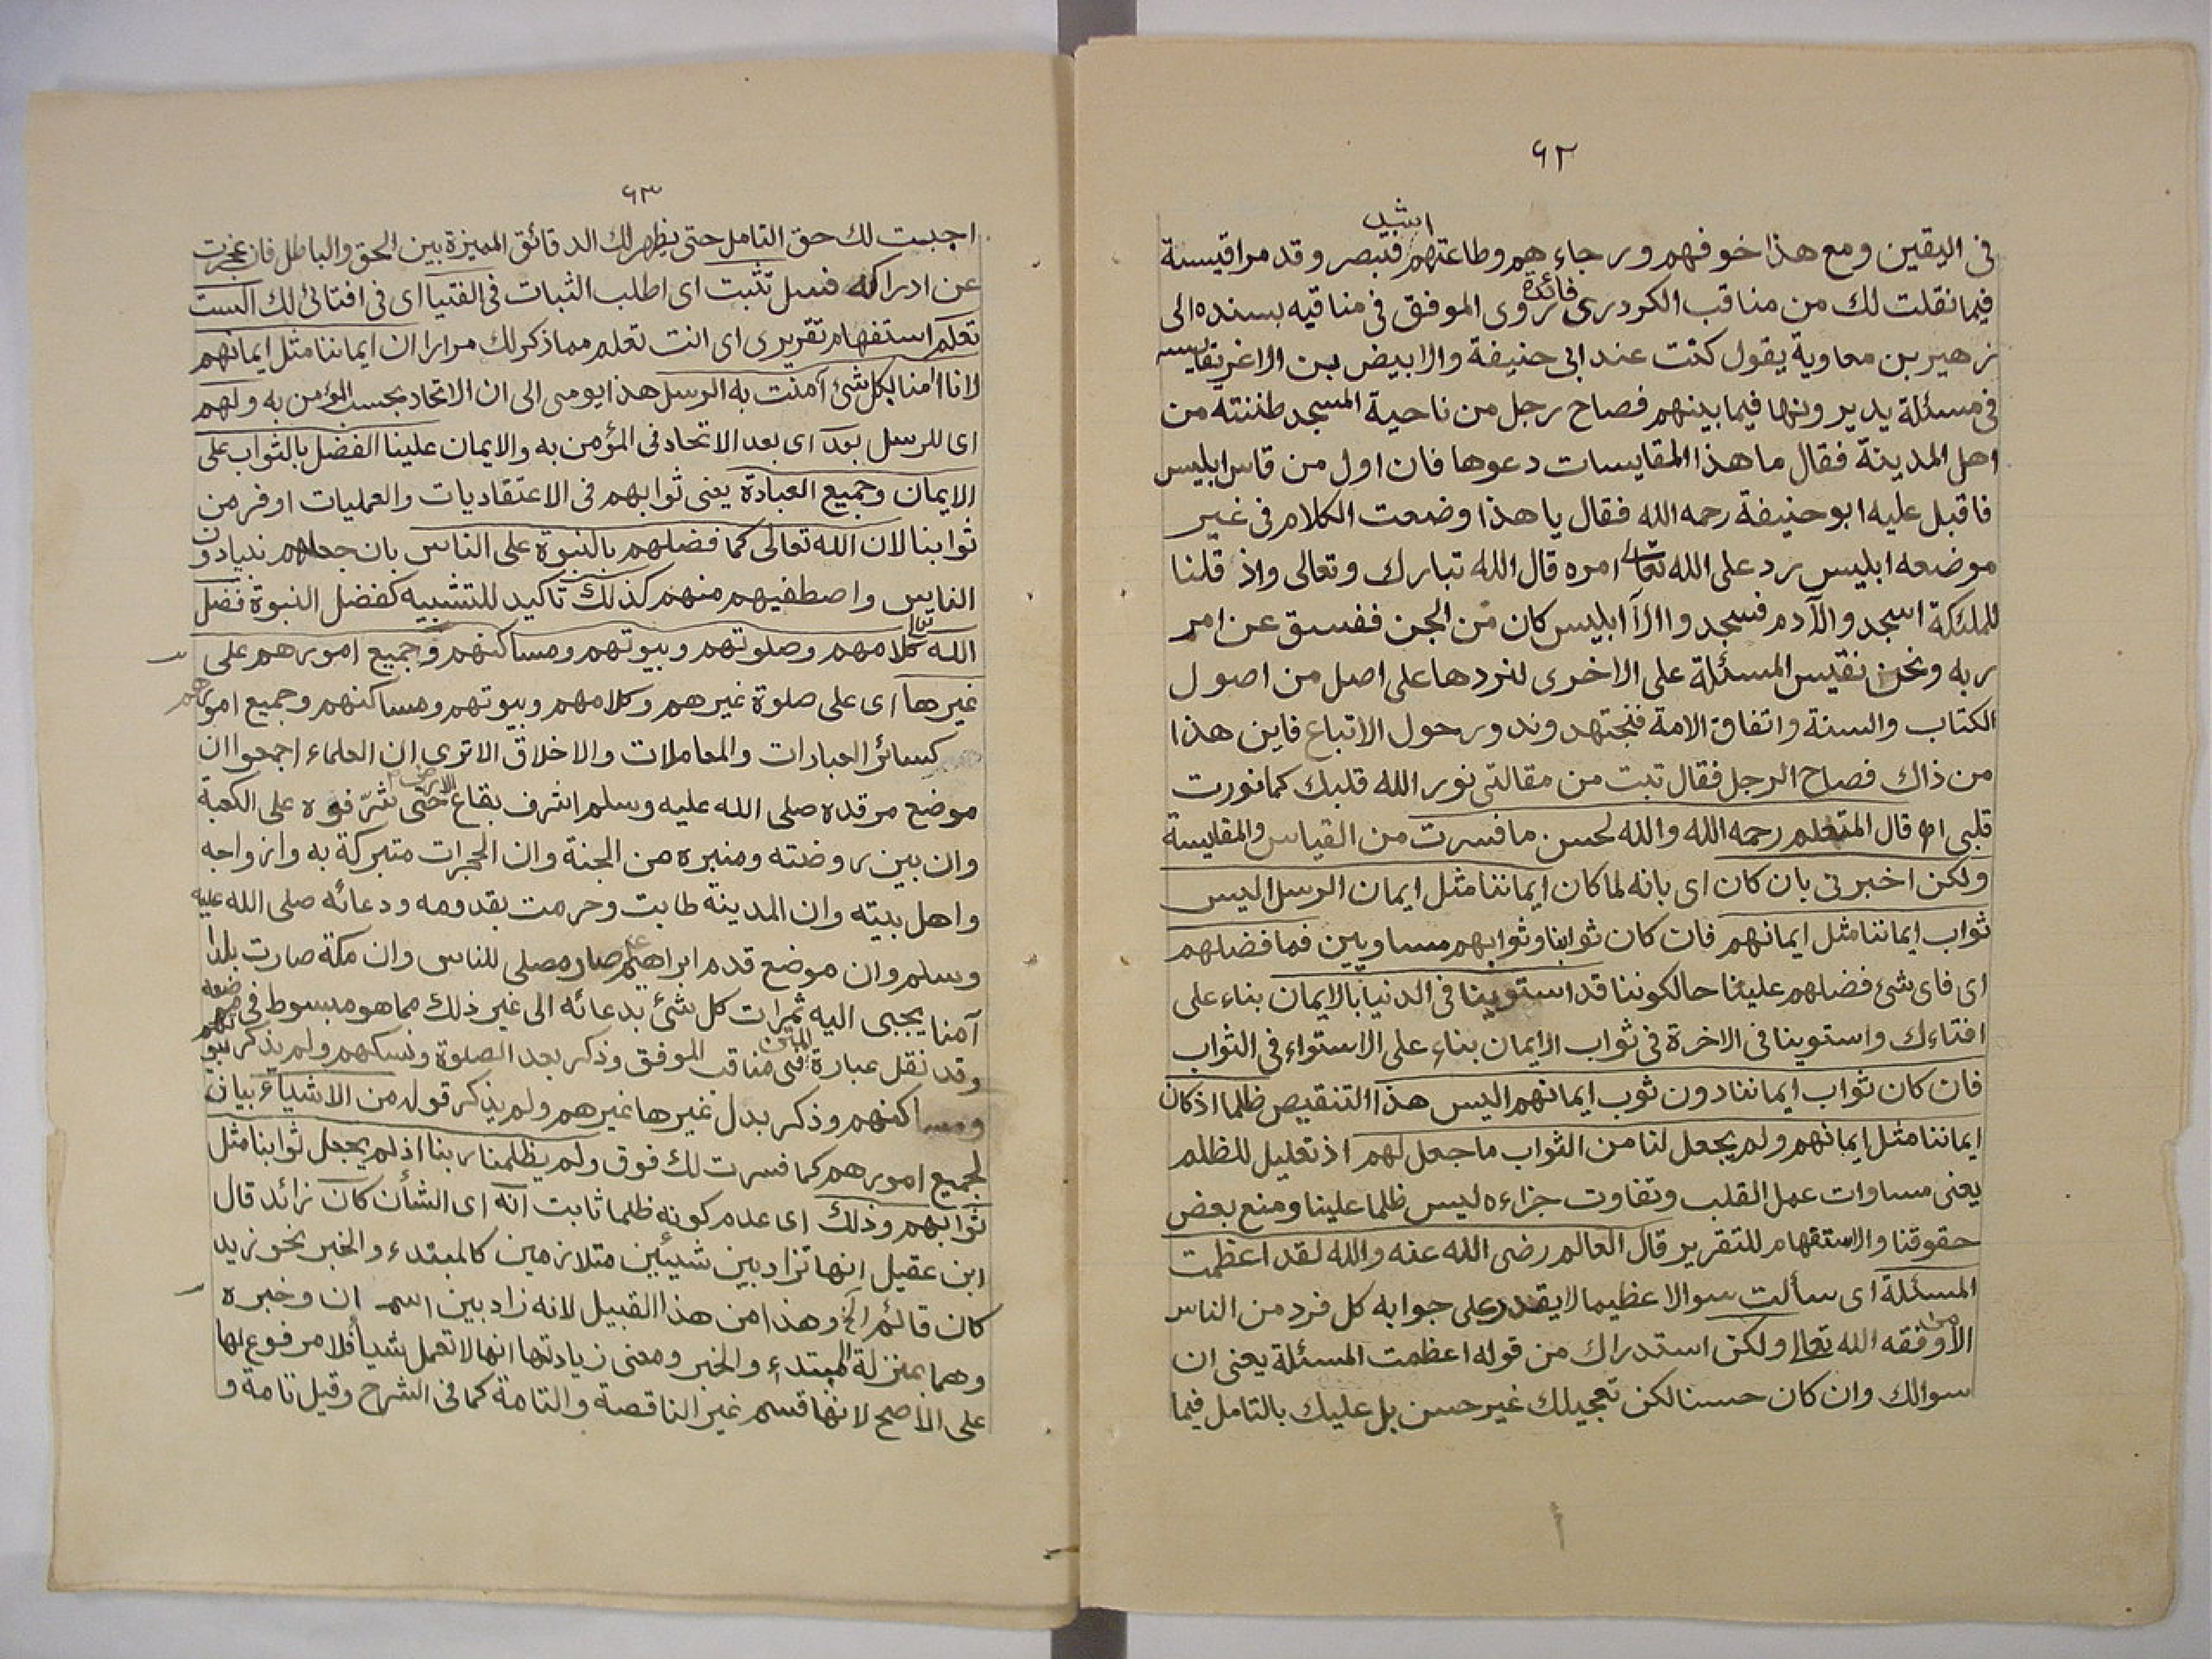 ٦٢
اشد
في اليقين ومع هذا خوفهم ورجاءهم وطاعتهم فتبصر وقد مر اقيسة
فيما نقلت لك من مناقب الكودري فائدة روى الموفق في مناقبه بسنده الى
زهير بن معاوية يقول كنت عند ابي حنيفة والابيض بن الاغر يقايسه
في مسئلة يديرونها فيما بينهم فصاح رجل من ناحية المسجد ظننته من
اهل المدينة فقال ما هذا المقايسات دعوها فان اول من قاس ابليس
فاقبل عليه ابو حنيفة رحمه الله فقال يا هذا وضعت الكلام في غير
موضعه ابليس رد على الله تعالى امره قال الله تبارك وتعالى واذ قلنا
للملئكة اسجدوا لآدم فسجدوا الا ابليس كان من الجن ففسق عن امر
ربه ونحن نقيس المسئلة على الاخرى لنردها على اصل من اصول
الكتاب والسنة واتفاق الامة فنجتهد وندور حول الاتباع فاين هذا
من ذاك فصاح الرجل فقال تبت من مقالتي نور الله قلبك كما نورت
قلبي اه قال المتعلم رحمه الله والله لحسن ما فسرت من القياس والمقايسة
ولكن اخبرني بان كان اي بانه لما كان ايماننا مثل ايمان الرسل اليس
ثواب ايماننا مثل ايمانهم فان كان ثوابنا وثوابهم مساويين فما فضلهم
اي فاي شئ فضلهم علينا حالكوننا قد استوينا في الدنيا بالايمان بناء على
افتاءك واستوينا في الاخرة في ثواب الايمان بناء على الاستواء في الثواب
فان كان ثواب ايماننا دون ثوب ايمانهم اليس هذا التنقيص ظلما اذ كان
ايماننا مثل ايمانهم ولم يجعل لنا من الثواب ما جعل لهم اذ تعليل للظلم
يعني مساوات عمل القلب وتفاوت جزاءه ليس ظلما علينا ومنع بعض
حقوقنا والاستفهام للتقرير قال العالم رضى الله عنه والله لقد اعظمت
المسئلة اي سألت سوالا عظيما لا يقدر على جوابه كل فرد من الناس
الا من وفقه الله تعالى ولكن استدراك من قوله اعظمت المسئلة يعني ان
سوالك وان كان حسنا لكن تعجيلك غير حسن بل عليك بالتامل فيما
٦٣
اجبت لك حق التامل حتى يظهر لك الدقائق المميزة بين الحق والباطل فان عجزت
عن ادراكه فسل تثبت اي اطلب الثبات في الفتيا اي في افتائى لك الست
تعلم استفهام تقريري اي انت تعلم مما ذكر لك مرارا ان ايماننا مثل ايمانهم
لانا آمنا بكل شئ آمنت به الرسل هذا يومى الى ان الاتحاد بحسب المؤمن به ولهم
اي للرسل بعد اي بعد الاتحاد في المؤمن به والايمان علينا الفضل بالثواب على
الايمان وجميع العبادة يعني ثوابهم في الاعتقاديات والعمليات اوفر من
ثوابنا لان الله تعالى كما فضلهم بالنبوة على الناس بان جعلهم نبيا دون
الناس واصطفيهم منهم كذلك تاكيد للتشبيه كفضل النبوة فضل
الله تعالى كلامهم وصلوتهم وبيوتهم ومساكنهم وجميع امورهم على
غيرها اي على صلوة غيرهم وكلامهم وبيوتهم ومساكنهم وجميع امورهم
كسائر العبارات والمعاملات والاخلاق الا ترى ان العلماء اجمعوا ان
موضع مرقده صلى الله عليه وسلم اشرف بقاع الارض حتى شرفوه على الكعبة
وان بين روضته ومنبره من الجنة وان الحجرات متبركة به وازواجه
واهل بيته وان المدينة طابت وحرمت بقدومه ودعائه صلى الله عليه
وسلم وان موضع قدم ابراهيم صار مصلى للناس وان مكة صارت بلدا
آمنا يجبى اليه ثمرات كل شئ بدعائه الى غير ذلك مما هو مبسوط في موضعه
وقد نقل عبارة المتن في مناقب الموفق وذكر بعد الصلوة ونسكهم ولم يذكر بيوتهم
ومساكنهم وذكر بدل غيرها غيرهم ولم يذكر قوله من الاشياء بيان
لجميع امورهم كما فسرت لك فوق ولم يظلمنا ربنا اذ لم يجعل ثوابنا مثل
ثوابهم وذلك اي عدم كونه ظلما ثابت انه اي الشأن كان زائد قال
ابن عقيل انها تزاد بين شيئين متلازمين كالمبتدء والخبر نحو زيد
كان قائم الخ وهذا من هذا القبيل لانه زاد بين اسم ان وخبره
وهما بمنزلة المبتدء والخبر ومعنى زيادتها انها لا تعمل شيأ فلا مرفوع لها
على الاصح لانها قسم غير الناقصة والتامة كما في الشرح وقيل تامة و